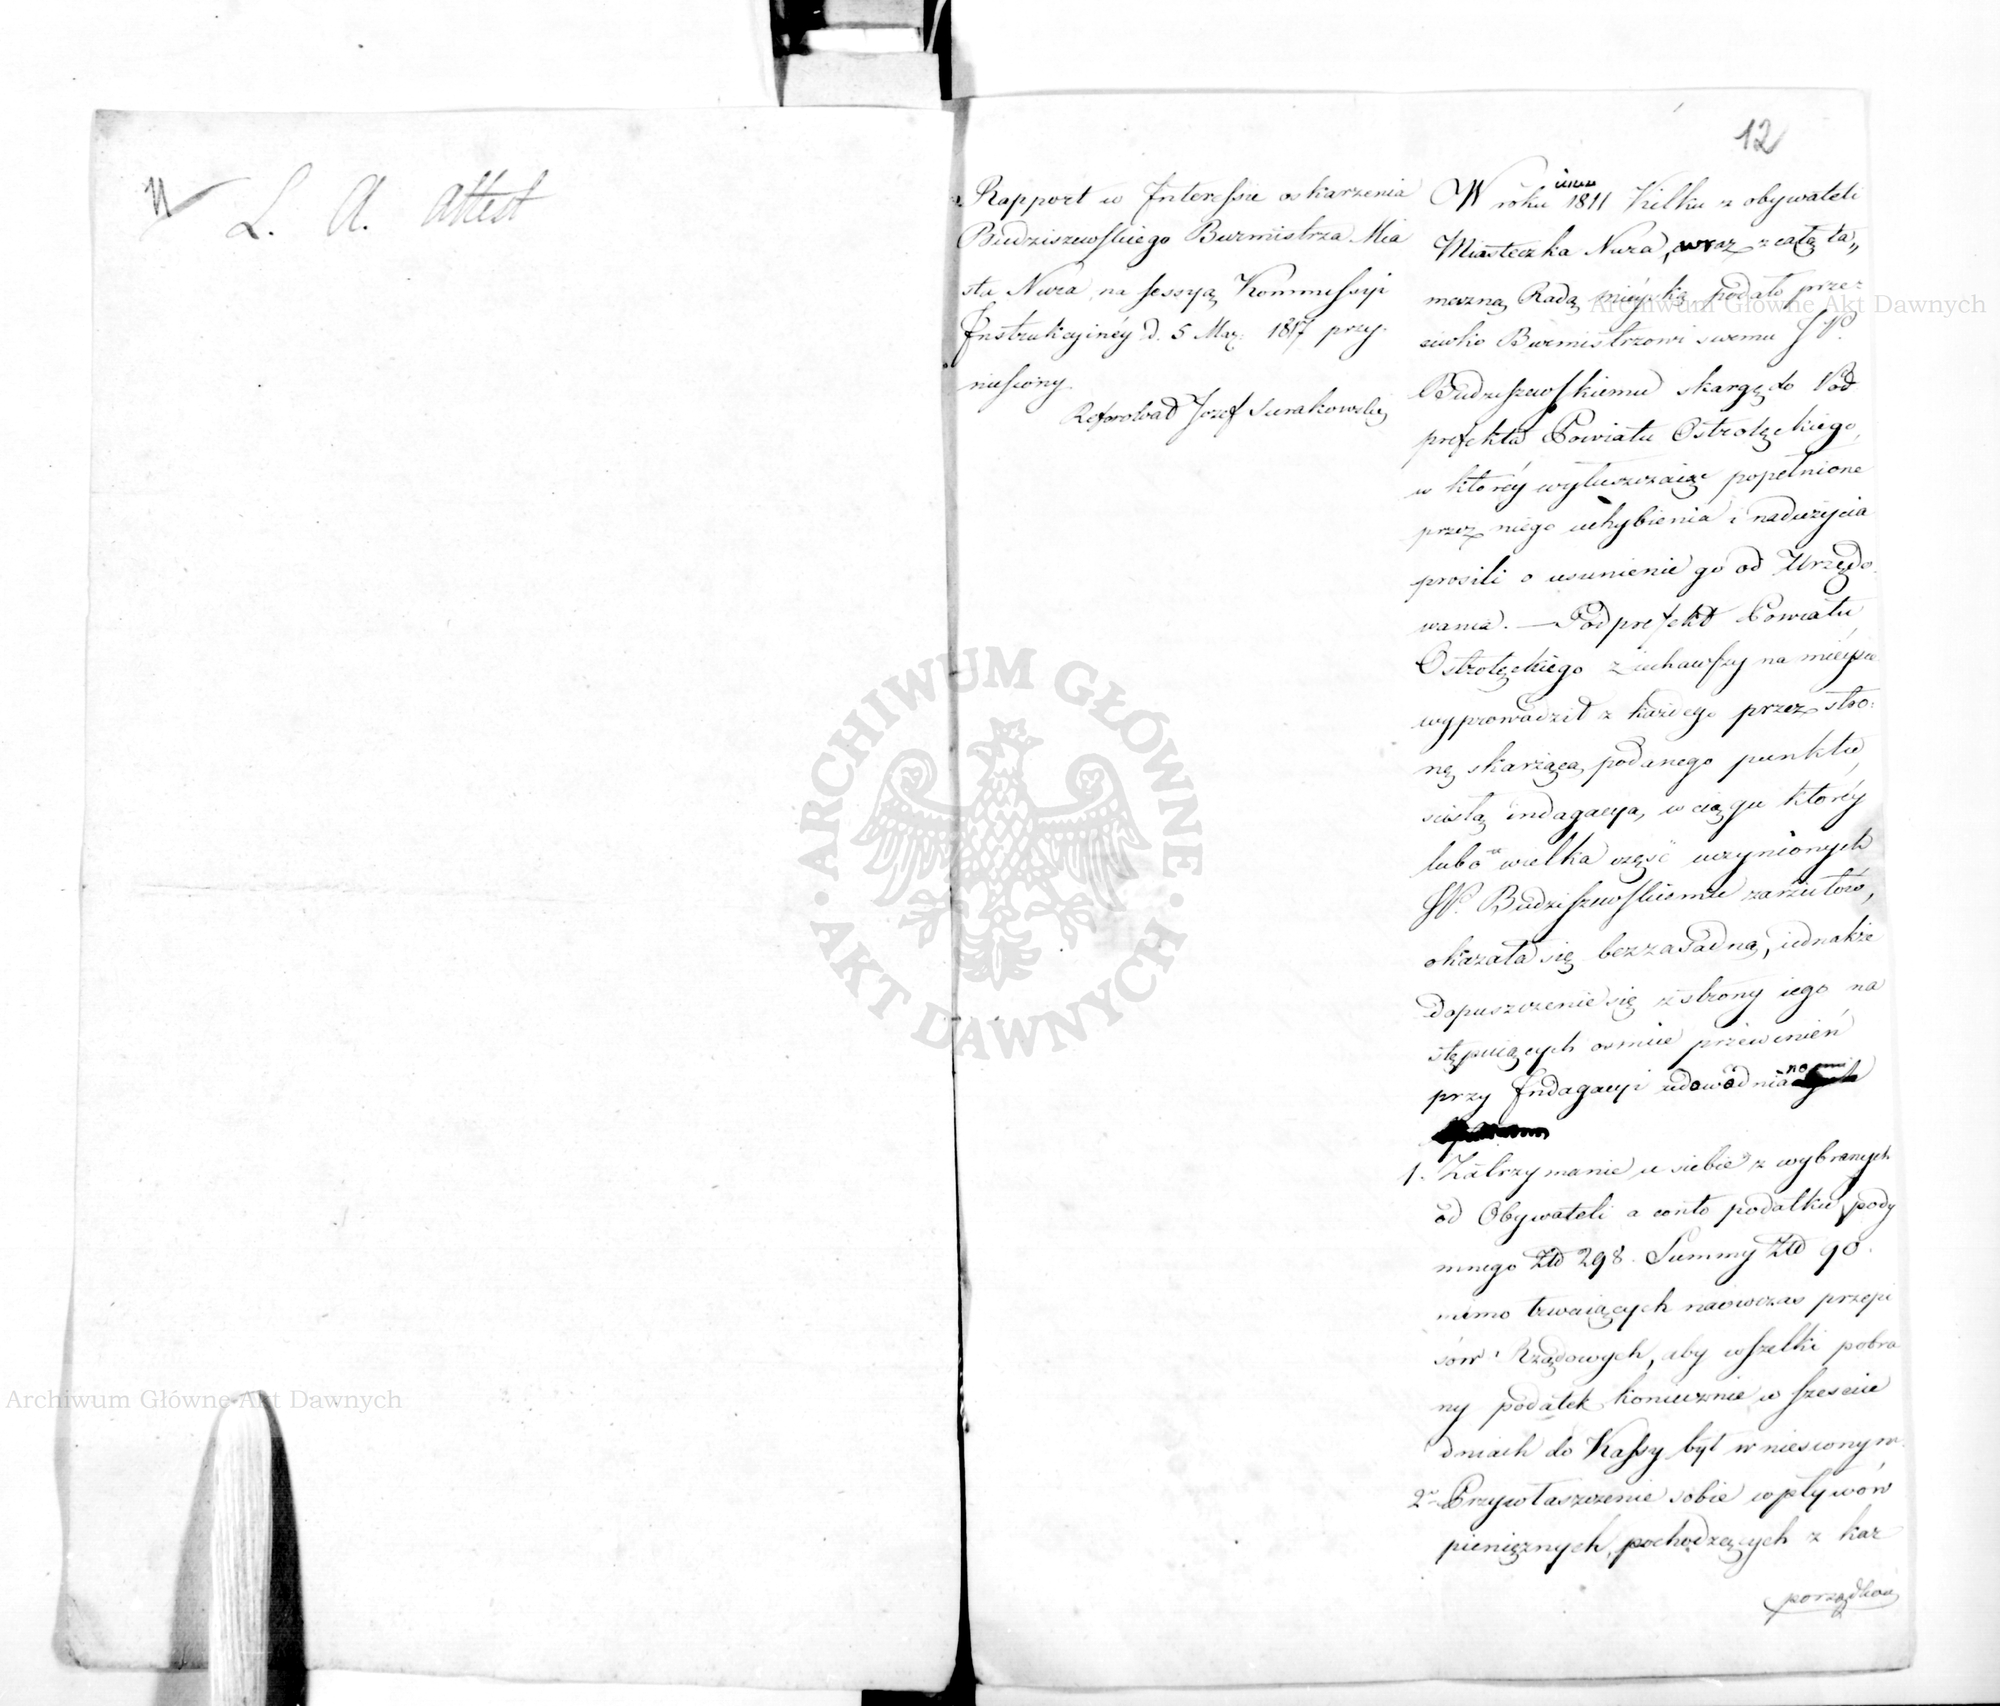 L. A. attest
12
Rapport w Interessie oskarzenia
Budziszewskiego Burmistrza Mia
sta Nura na sessyą Kommissyi
Instrukcyinéy d. 5 Maz: 1817 przy-
niesiony.
Referował Jozef Surakowski
W roku 1811 Kilku z obywateli
Miasteczka Nura, wraz z całą ta„
meczną Radą mieyską, podało prze-
ciwko Burmistrzowi swemu JP.
Budziszewskiemu skargę do Pod
prefekta Powiatu Ostrołęckiego,
w ktoréy wyłuszczaiąc popełnione
przez niego uchybienia i nadużycia
prosili o usunienie go od Urzędo-
wania. — Podprefekt Powiatu
Ostrołęckiego ziechawszy na mieysce
wyprowadził z każdego przez stro-
nę skarżącą podanego punktu,
scisłą indagacyą, w ciągu ktoréy
lubo wielka część uczynionych
JP. Budziszewskiemu zarzutów,
okazała się bezzasadną, iednakże
dopuszczenie się z strony iego na
stępuiących osmiu przewinień
przy Indagacyi udowodniono
1. Zatrzymanie u siebie z wybranych
od Obywateli a conto podatku pody
mnego Złł 298. Summy Złł 90.
mimo trwaiących naowczas przepi
sów Rządowych, aby wszelki pobra
ny podatek koniecznie w sześciu
dniach do Kassy był wniesionym.
2o Przywłaszczenie sobie wpływów
pieniężnych, pochodzących z kar
porządkow
Archiwum Główne Akt Dawnych
Archiwum Główne Akt Dawnych
ARCHIWUM GŁÓWNE
AKT DAWNYCH